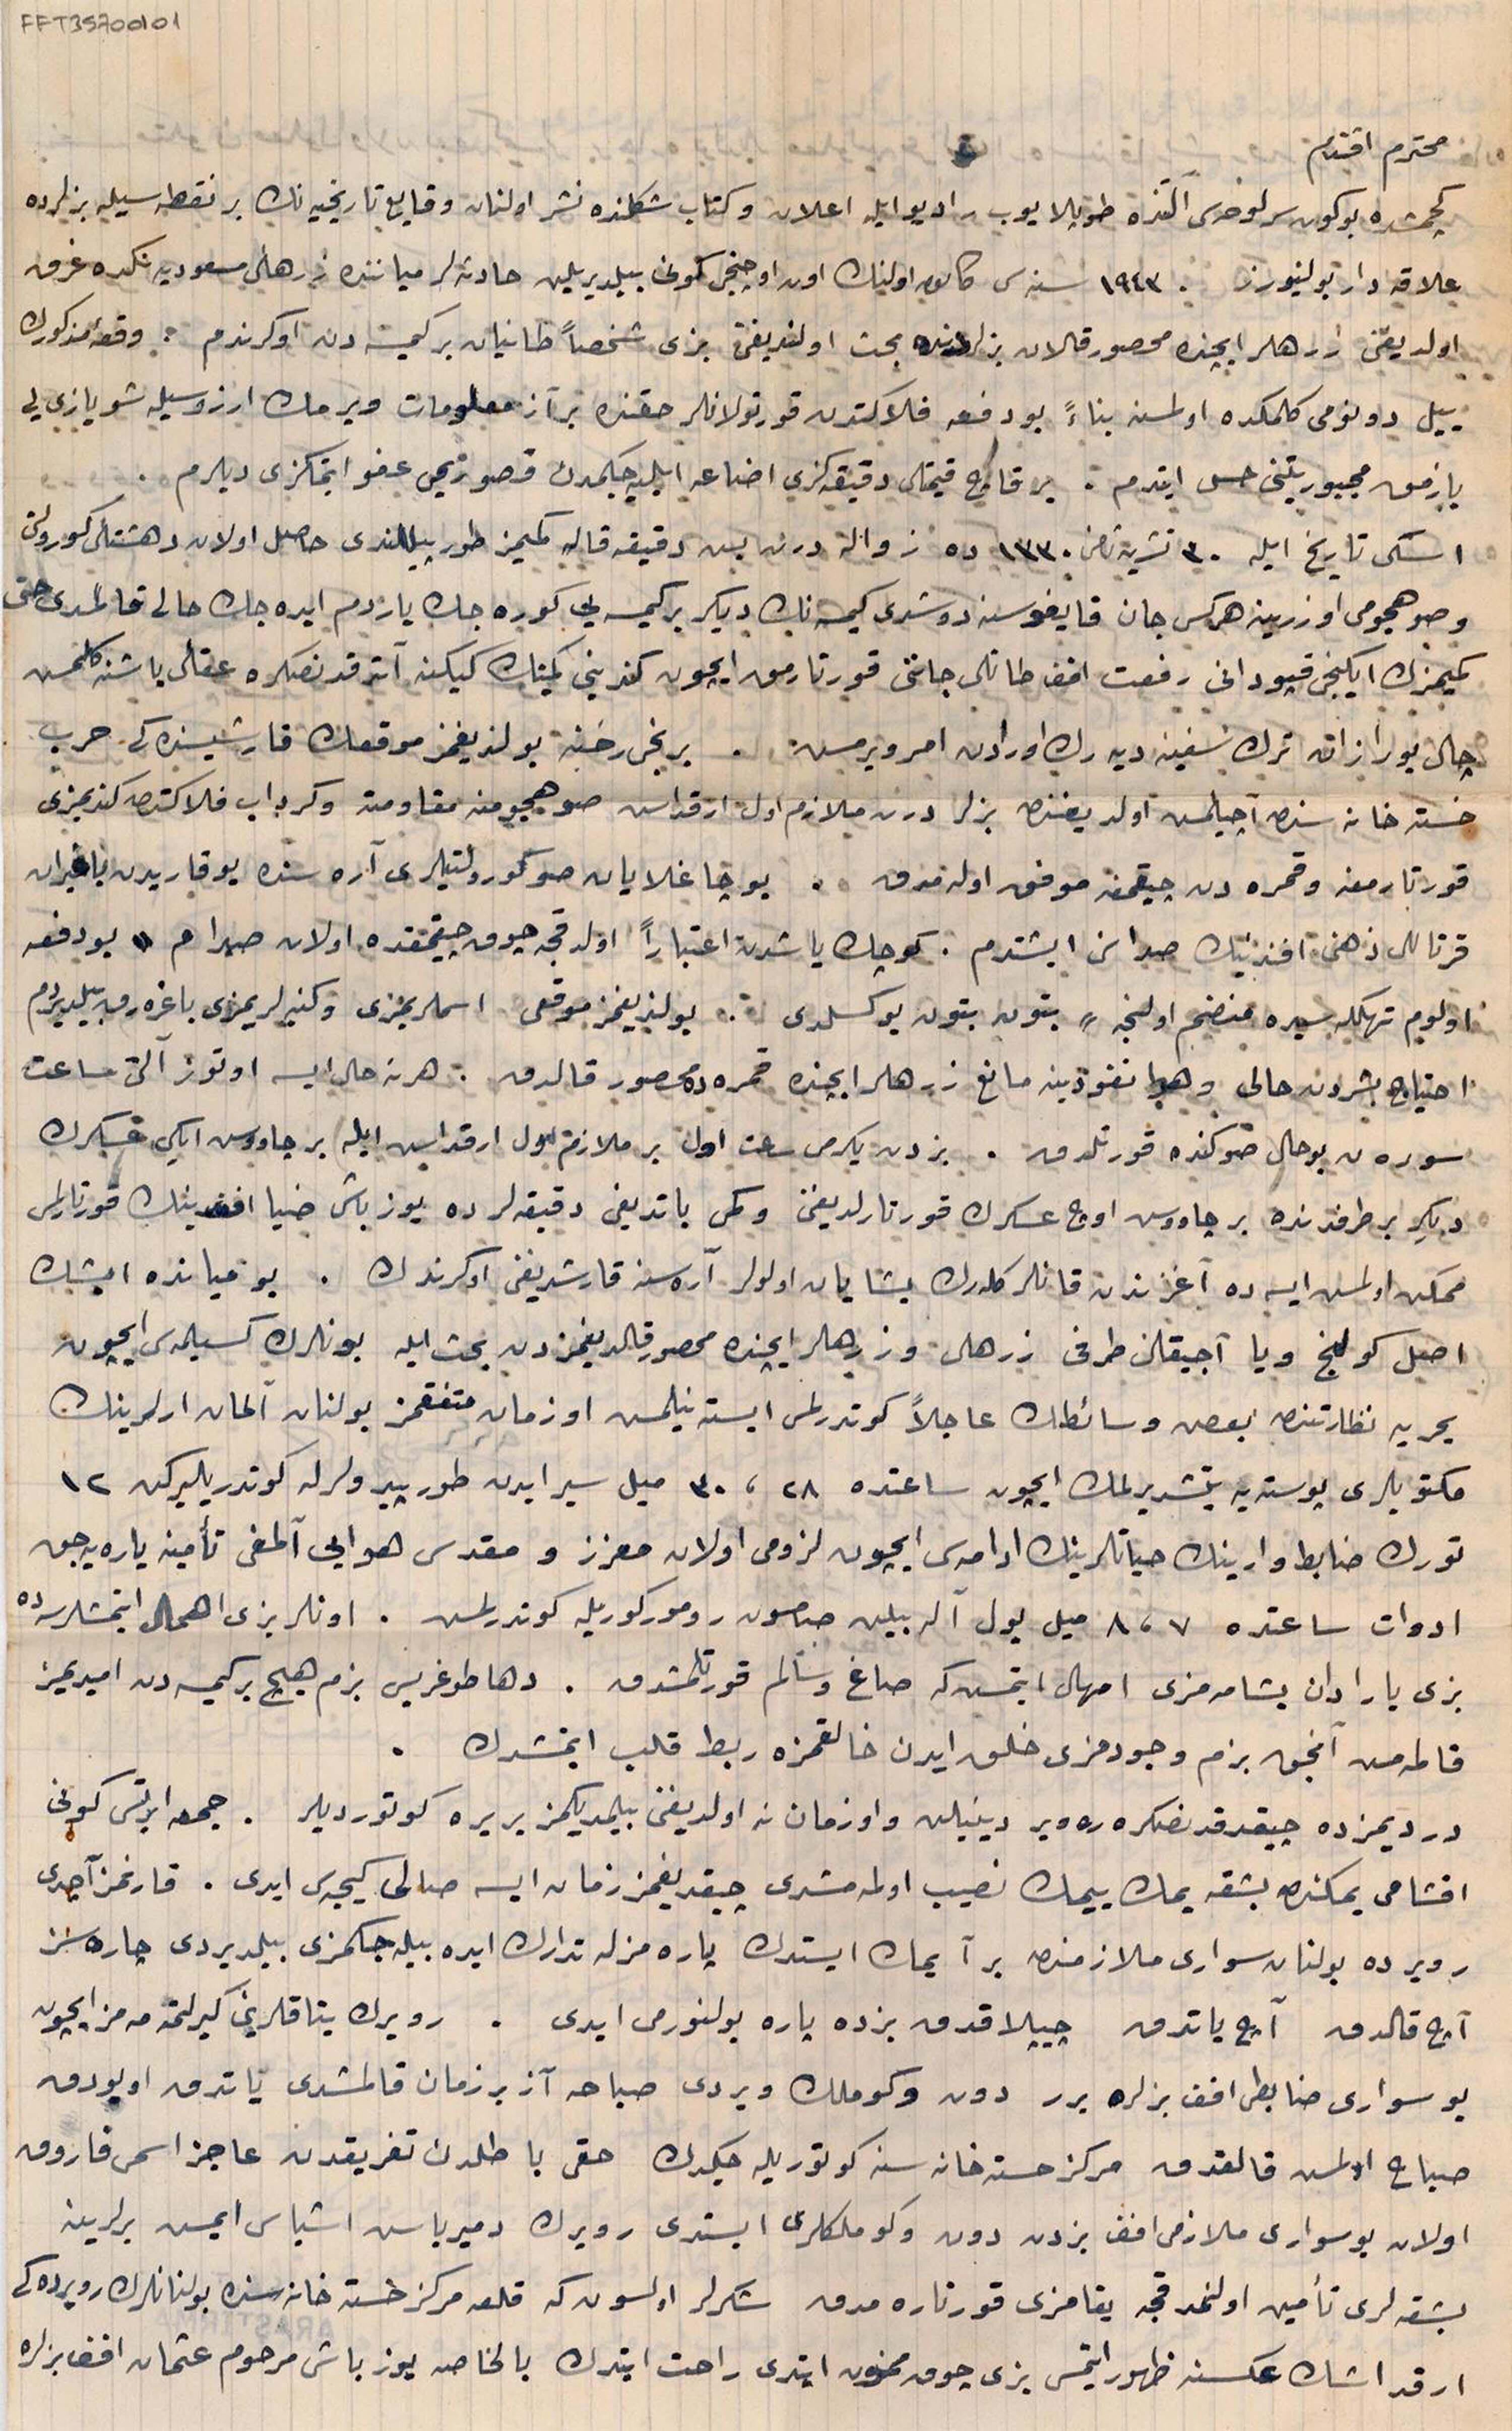 FFT35700101
محترم افندم
كچمشده بوكون سرلوحه‌سى آلتنده طوپلايوب راديو ايله اعلان و كتاب شكلنده نشر اولنان وقايع تاريخيه‌نك بر نقطه‌سيله بزلرده
علاقه‌دار بولنيورز . ١٩٤٣ سنه‌سى كانون اولنك اون اوچنجى كونى بيلديريلن حادثه‌لر مياننده زرهلى مسعوديه‌نك ده غرق
اولديغنى زرهلر ايچنده محصور قالان بزلردنده بحث اولنديغنى بزى شخصاً طانيان بر كيمسه‌دن اوكرندم . وقعهٔ مذكوره‌نك
ييل دونومى كلمكده اولمسنه بناءً بو دفعه فلاكتدن قورتولانلر حقنده بر آز معلومات ويرمك ارزوسيله شو يازى‌يى
يازمق مجبوريتنى حس ايتدم . بر قاچ قيمتلى دقيقه‌كزى اضاعه ايليه‌جكمدن قصوريمى عفو ايتمكزى ديلرم .
اسكى تاريخ ايله ٣٠ تشرين ثانى ١٣٣٠ ده زواله درت بش دقيقه قاله كميمز طورپيللندى حاصل اولان دهشتلى كورولتى
و صو هجومى اوزرينه هركس جان قايغوسنه دوشدى كيمسه‌نك ديكر بر كيمسه‌يى كوره‌جك ياردم ايده‌جك حالى قالمدى حتى
كميمزك ايكنجى قپودانى رفعت افندى طاتلى جاننى قورتارمق ايچون كندينى كمينك ايپكنه آتدقدنصكره عقلى باشنه كلمش
چالى بورازان ترك سفينه ديه‌رك اورادن امر ويرمش . برنجى رخنه بولنديغمز موقعك قارشيسنده‌كى حرب
خسته‌خانه‌سنده آچيلمش اولديغندن بزلر درت ملازم اول ارقداش صو هجومنه مقاومت و كرداب فلاكتدن كنديمزى
قورتارمغه و قمره‌دن چيقمغه موفق اوله‌مدق . بو چاغلايان صو كورولتيلرى آره‌سنده يوقاريدن باغيران
قرتاللى ذهنى افندينك صداسنى ايشتدم . كوچك ياشدن اعتباراً اولدقجه چوق چيقمقده اولان صدام " بو دفعه
اولوم تهلكه‌سيده منضم اولنجه " بتون بتون يوكسلدى . بولنديغمز موقعى اسملريمزى و كنيه‌لريمزى باغره‌رق بيلديردم
احتياج بشردن خالى و هوا نفوذينه مانع زرهلر ايچنده قمره‌ده محصور قالدق . هر نه حال ايسه اوتوز آلتى ساعت
سورن بو حال صوكنده قورتلدق . بزدن يكرمى ساعت اول بر ملازم اول ارقداش ايله بر چاووش ايكى عسكرك
ديكر بر طرفدنده بر چاووش اوچ عسكرك قورتارلديغنى و كمى باتديغى دقيقه‌لرده يوزباشى ضيا افندينك قورتارلمسى
ممكن اولمش ايسه‌ده آغزندن قانلر كله‌رك يشايان اولولر آره‌سنه قارشديغنى اوكرندك . بو مياندە ايشك
اصل كولنج ويا آجيقلى طرفى زرهلى و زرهلر ايچنده محصور قالديغمزدن بحث ايله بونلرك كسيلمه‌سى ايچون
بحريه نظارتندن بعض وسائطك عاجلاً كوندرلمسى ايسته‌نيلمش او زمان متفقمز بولنان آلمان ارلرينك
مكتوبلرى پوسته‌يه يتشديرلمك ايچون ساعتده ٢٨ ، ٣٠ ميل سير ايدن طورپيدولرله كوندريليركن ١٢
تورك ضابط وارينك حياتلرينك ادامه‌سى ايچون لزومى اولان معزز و مقدس هوايى آلمغى تأمينه يارايه‌جق
ادوات ساعتده ٧ ، ٨ ميل يول آله بيلن صامسون رومركوريله كوندرلمش . اونلر بزى اهمال ايتمشلرسه‌ده
بزى يارادان يشامه‌مزى امهال ايتمش كه صاغ و سالم قورتلمشدق . دها طوغريسى بزم هيچ بر كيمسه‌دن اميديمز
قالمه‌مش آنجق بزم وجودمزى خلق ايدن خالقمزه ربط قلب ايتمشدك .
درديمزده چيقدقدنصكره رەوير دينيلن و او زمان نه اولديغنى بيلمديكمز بر يره كوتورديلر . جمعه ايرتسى كونى
اقشامى يمكندن بشقه يمك ييمك نصيب اولمه‌مشدى چيقديغمز زمان ايسه صالى كيجه‌سى ايدى . قارنمز آجدى
رەويرده بولنان سوارى ملازمندن بر آز يمك ايستدك پاره‌مزله تدارك ايده بيله‌جكمزى بيلديردى چاره‌سز
آچ قالدق آچ ياتدق چيپلاقدق بزده پاره بولنورمى ايدى . رەويرك يتاقلرينى كيرلتمه‌مه‌مز ايچون
بو سوارى ضابطى افندى بزلره برر دون و كوملك ويردى صباحه آز بر زمان قالمشدى ياتدق اويودق
صباح اولمش قالقدق مركز خسته‌خانه‌سنه كوتوريله‌جكدك حقى باطلدن تفريقدن عاجز اسمى فاروق
اولان بو سوارى ملازمى افندى بزدن دون و كوملكلرى ايستدى رەويرك دميرباش اشياسى ايمش يرلرينه
بشقه‌لرى تأمين اولنمدقجه يقامزى قورتاره‌مدق شكرلر اولسون كه قلعه مركز خسته‌خانه‌سنده بولنانلرك رەويرده‌كى
ارقداشك عكسنه ظهور ايتمسى بزى چوق ممنون ايتدى راحت ايتدك بالخاصه يوزباشى مرحوم عثمان افندى بزلره